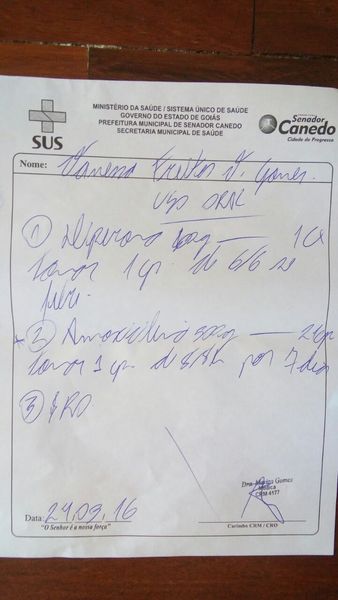 MINISTÉRIO DA SAÚDE / SISTEMA ÚNICO DE SAÚDE
GOVERNO DO ESTADO DE GOIÁS
PREFEITURA MUNICIPAL DE SENADOR CANEDO
SECRETARIA MUNICIPAL DE SAÚDE
SUS
Senador
Canedo
Cidade do Progresso
Nome: Vanessa Freitas
USO ORAL
1 Dipirona 1 cx
tomar 1 cp de 6/6 se
febre.
2 Amoxicilina 500mg
tomar 1 cp de 8/8h por 7 dias
3 SRO
Data: 24.03.16
"O Senhor é a nossa força"
Gomes
Médica
CRM 4177
Carimbo CRM / CRO